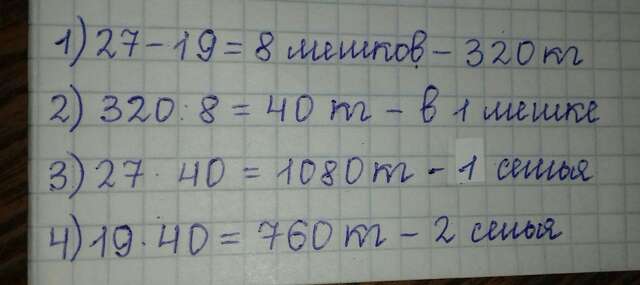 1) 27 - 19 = 8 мешков - 320 кг
2) 320 : 8 = 40 кг - в 1 мешке
3) 27 · 40 = 1080 кг - 1 семья
4) 19 · 40 = 760 кг - 2 семья